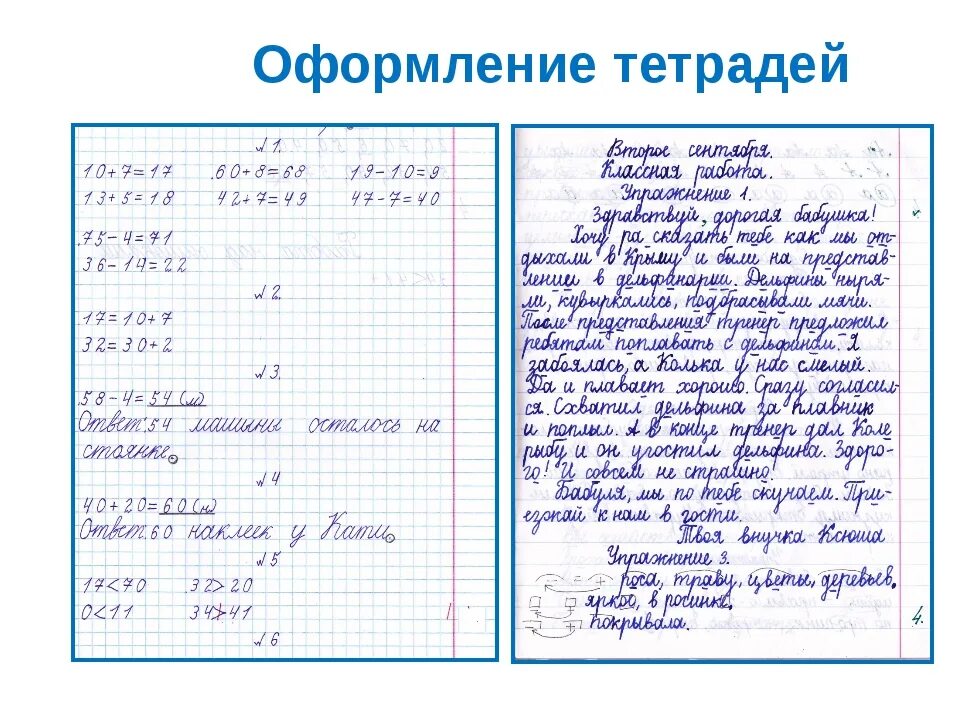 Оформление тетрадей
№1.
10+7=17 60+8=68 19-10=9
13+5=18 42+7=49 47-7=40
75-4=71
36-14=22
№2.
17=10+7
32=30+2
№3.
58-4=54 (м)
Ответ:54 машины осталось на
стоянке.
№4
40+20=60 (н)
Ответ:60 наклеек у Кати.
№5
17<70 32>20
0<11 34>41
№6
Второе сентября.
Классная работа.
Упражнение 1.
Здравствуй, дорогая бабушка!
Хочу ра сказать тебе как мы от-
дыхали в Крыму и были на представ-
лении в дельфанарии. Дельфины ныря-
ли, кувыркались, подбрасывали мячи.
После представления тренер предложил
ребятам поплавать с дельфином. Я
забоялась, а Колька у нас смелый.
Да и плавает хорошо. Сразу согласил-
ся. Схватил дельфина за плавник
и поплыл. А в конце тренер дал Коле
рыбу и он угостил дельфина. Здоро-
го! И совсем не страшно!
Бабуля, мы по тебе скучаем. При-
езжай к нам в гости.
Твоя внучка Ксюша
Упражнение 3.
роса, траву, цветы, деревьев.
яркою, в росинке.
покрывала.
4.